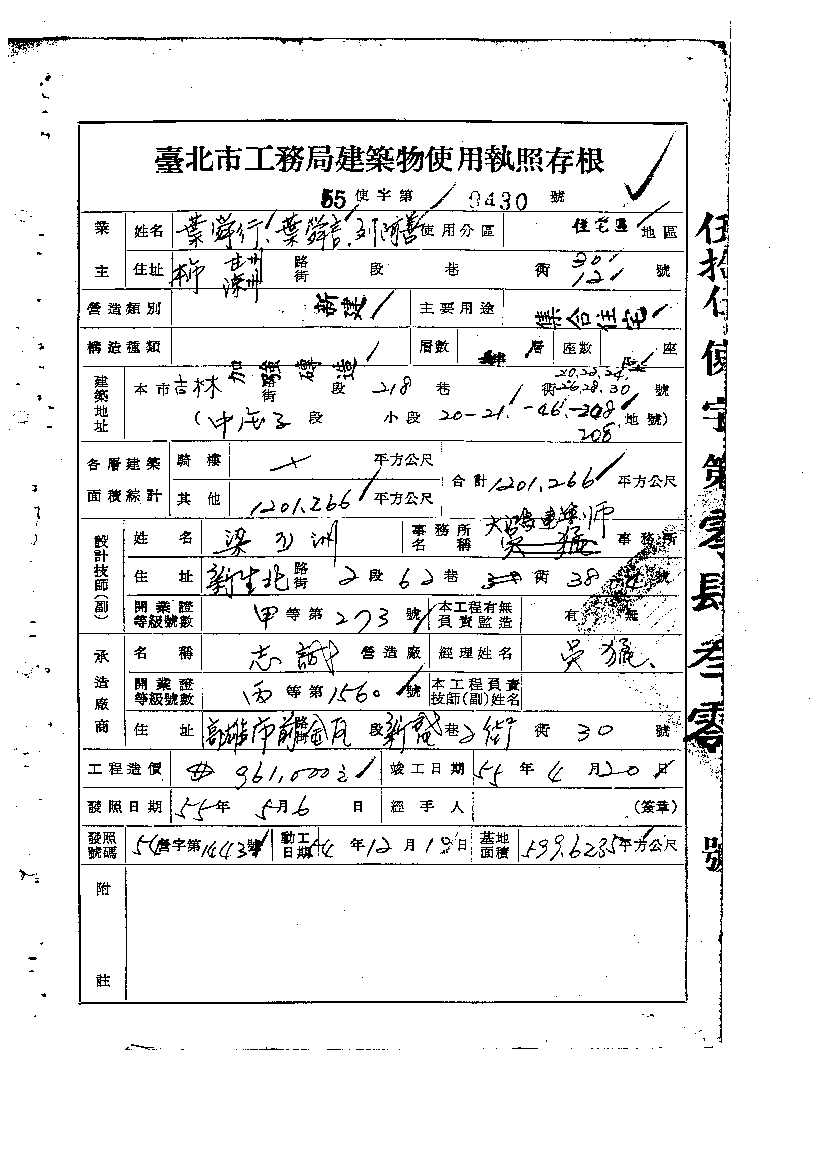 臺北市工務局建築物使用執照存根
55 使字第 0430 號
業主 姓名 葉舜行、葉舜言、 使用分區 住宅區 地區
住址 本市 甘州 路街 段 巷 衖 號
營造類別 新建 主要用途 集合住宅
構造種類 加強磚造 層數 層 座數 座
20.22.24.
建築地址 本市 吉林 路街 段 218 巷 衖 26.28.30 號
(中庄子 段 小段 20-21. -46. -208 地號)
208.
各層建築面積綜計 騎樓 平方公尺 合計 1201.266 平方公尺
其他 1201.266 平方公尺
設計技師(副) 姓名 梁 洲 事務所名稱 吳猛 事務所
住址 新生北 路街 2 段 62 巷 衖 38 號
開業證等級號數 甲 等第 273 號 本工程有無負責監造 有 無
承造廠商 名稱 志誠 營造廠 經理姓名 吳猛
開業證等級號數 丙 等第 1560 號 本工程負責技師(副)姓名
住址 高雄市前金區 段 新盛 巷 2街 衖 30 號
工程造價 961,000元 竣工日期 55 年 4 月 20 日
發照日期 55 年 5 月 6 日 經手人 (簽章)
發照號碼 54 營字第 1443 號 動工日期 54 年 12 月 19 日 基地面積 599.6235 平方公尺
附註
伍拾伍使字第零肆叁零號